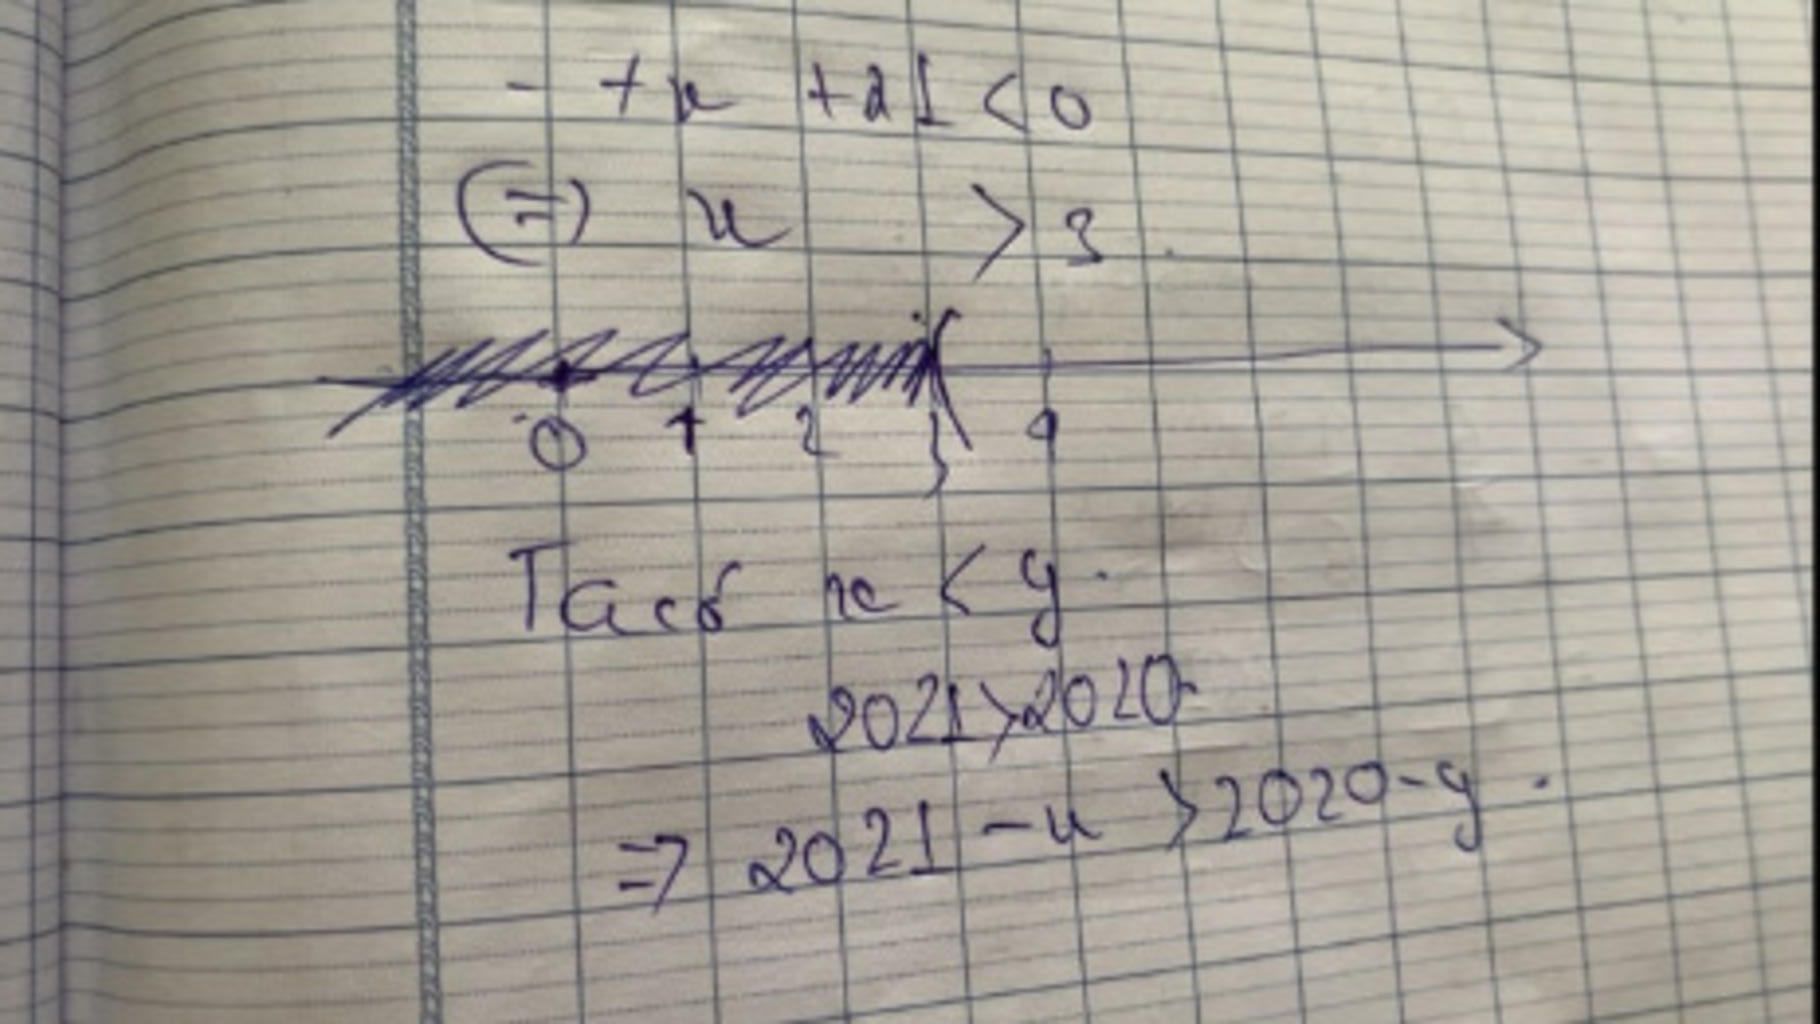 - + x + 21 < 0
(=) x > 3.
0 1 2 3 4
Ta có x < y.
2021 > 2020
=> 2021 - x > 2020 - y.